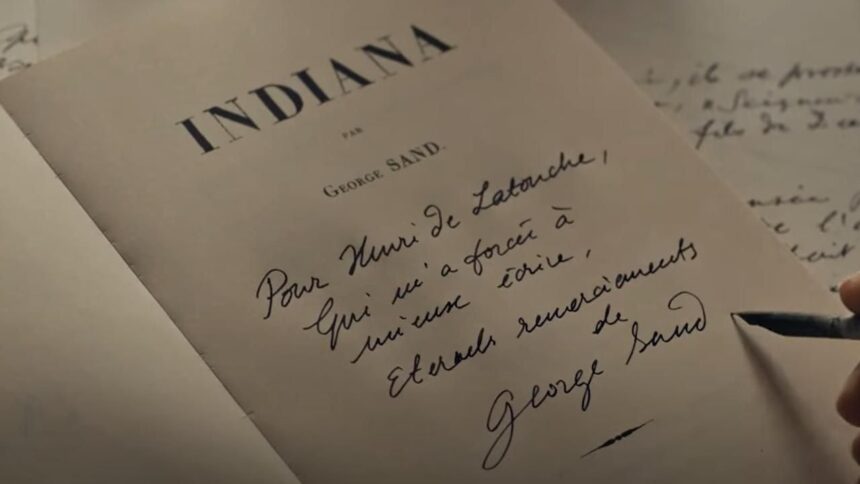 INDIANA
PAR
GEORGE SAND.
Pour Henri de Latouche,
Qui m'a forcée à
mieux écrire,
Eternels remerciements
de
George Sand
il se
fils de